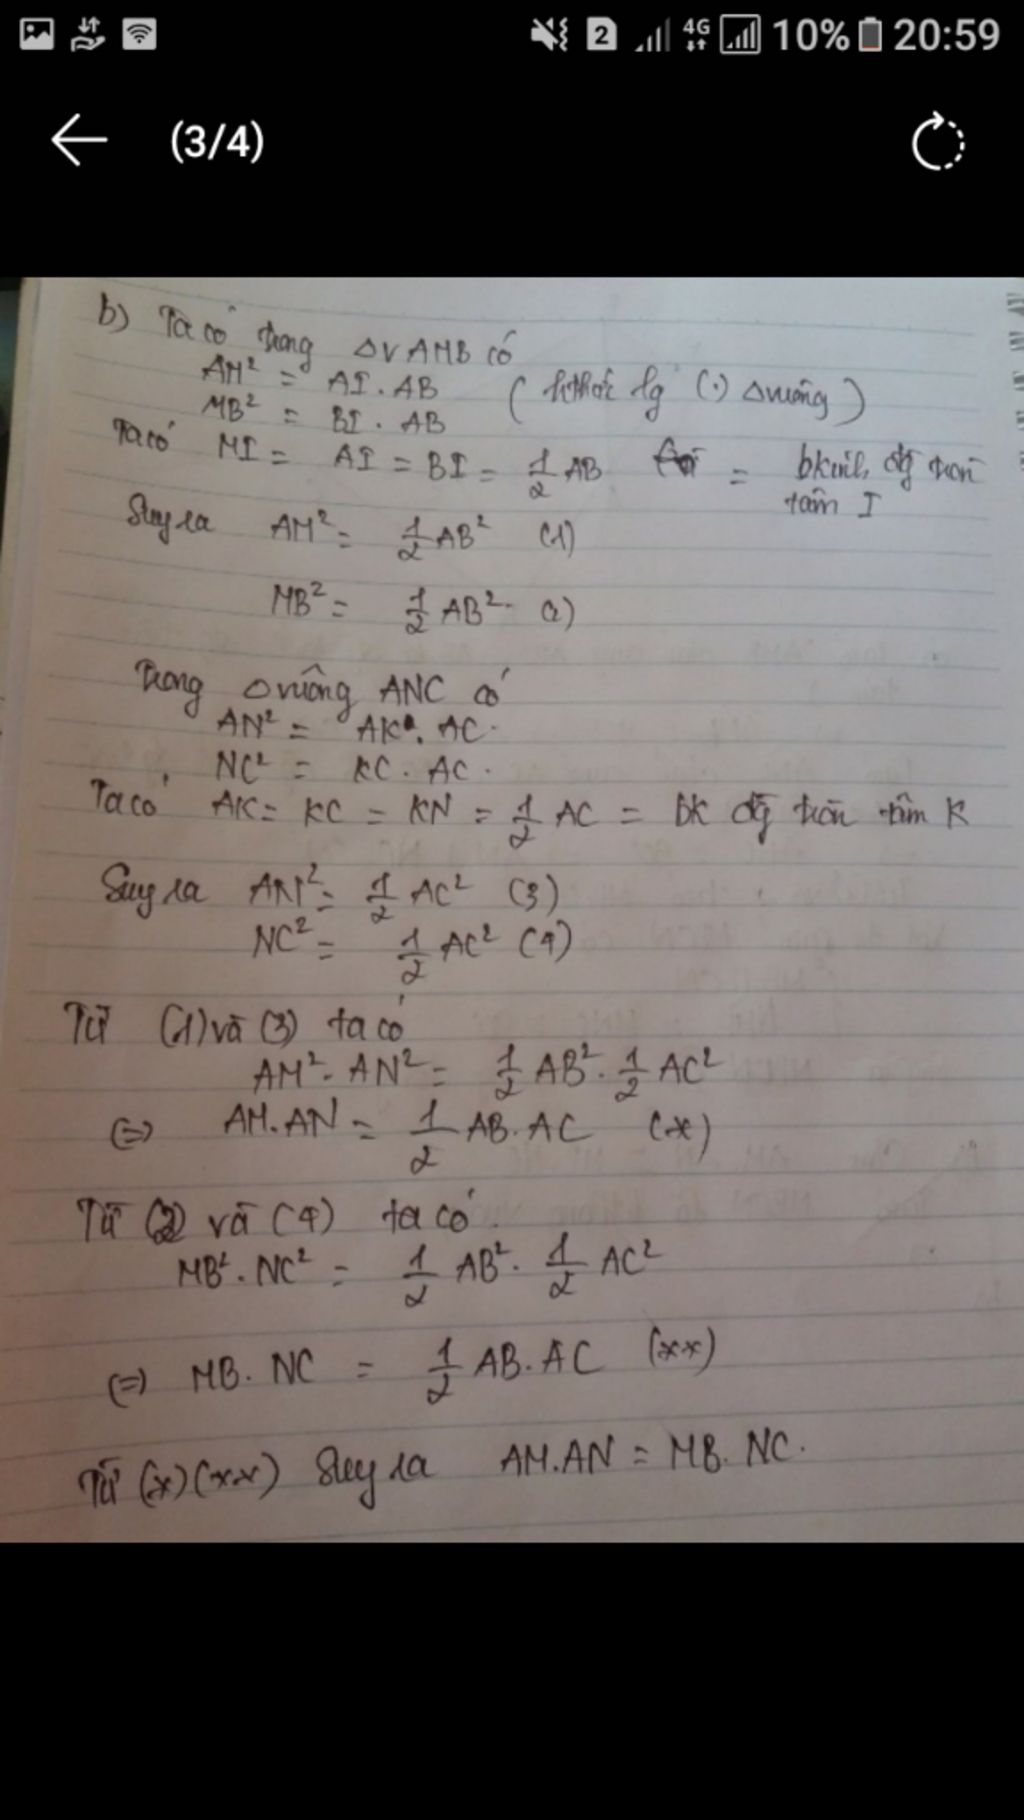 2 4G 10% 20:59
(3/4)
b) Ta có trong ΔV AMB có
AM² = AI . AB
MB² = BI . AB
( hthức lg (.) Δvuông )
Ta có MI = AI = BI = 1/2 AB = bkính đg tròn
tâm I
Suy ra AM² = 1/2 AB² (1)
MB² = 1/2 AB² (2)
Trong Δvuông ANC có
AN² = AK . AC
NC² = KC . AC .
Ta có AK = KC = KN = 1/2 AC = bk đg tròn tâm K
Suy ra AN² = 1/2 AC² (3)
NC² = 1/2 AC² (4)
Từ (1) và (3) ta có
AM² . AN² = 1/2 AB² . 1/2 AC²
(=) AM.AN = 1/2 AB.AC (x)
Từ (2) và (4) ta có
MB² . NC² = 1/2 AB² . 1/2 AC²
(=) MB. NC = 1/2 AB.AC (xx)
Từ (x) (xx) Suy ra AM.AN = MB.NC.